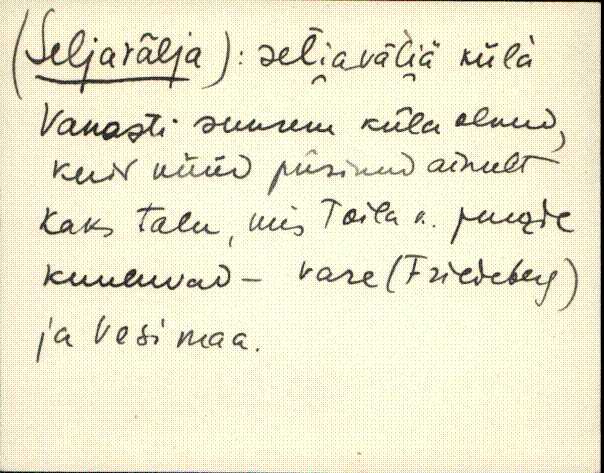 (Seljavälja): sel̆i̯aväli̯ä külä
Vanasti suurem küla olnud,
kuid nüüd püsinud ainult
kaks talu, mis Toila v. juurde
kuuluvad – Vare (Friedeberg)
ja Vesimaa.